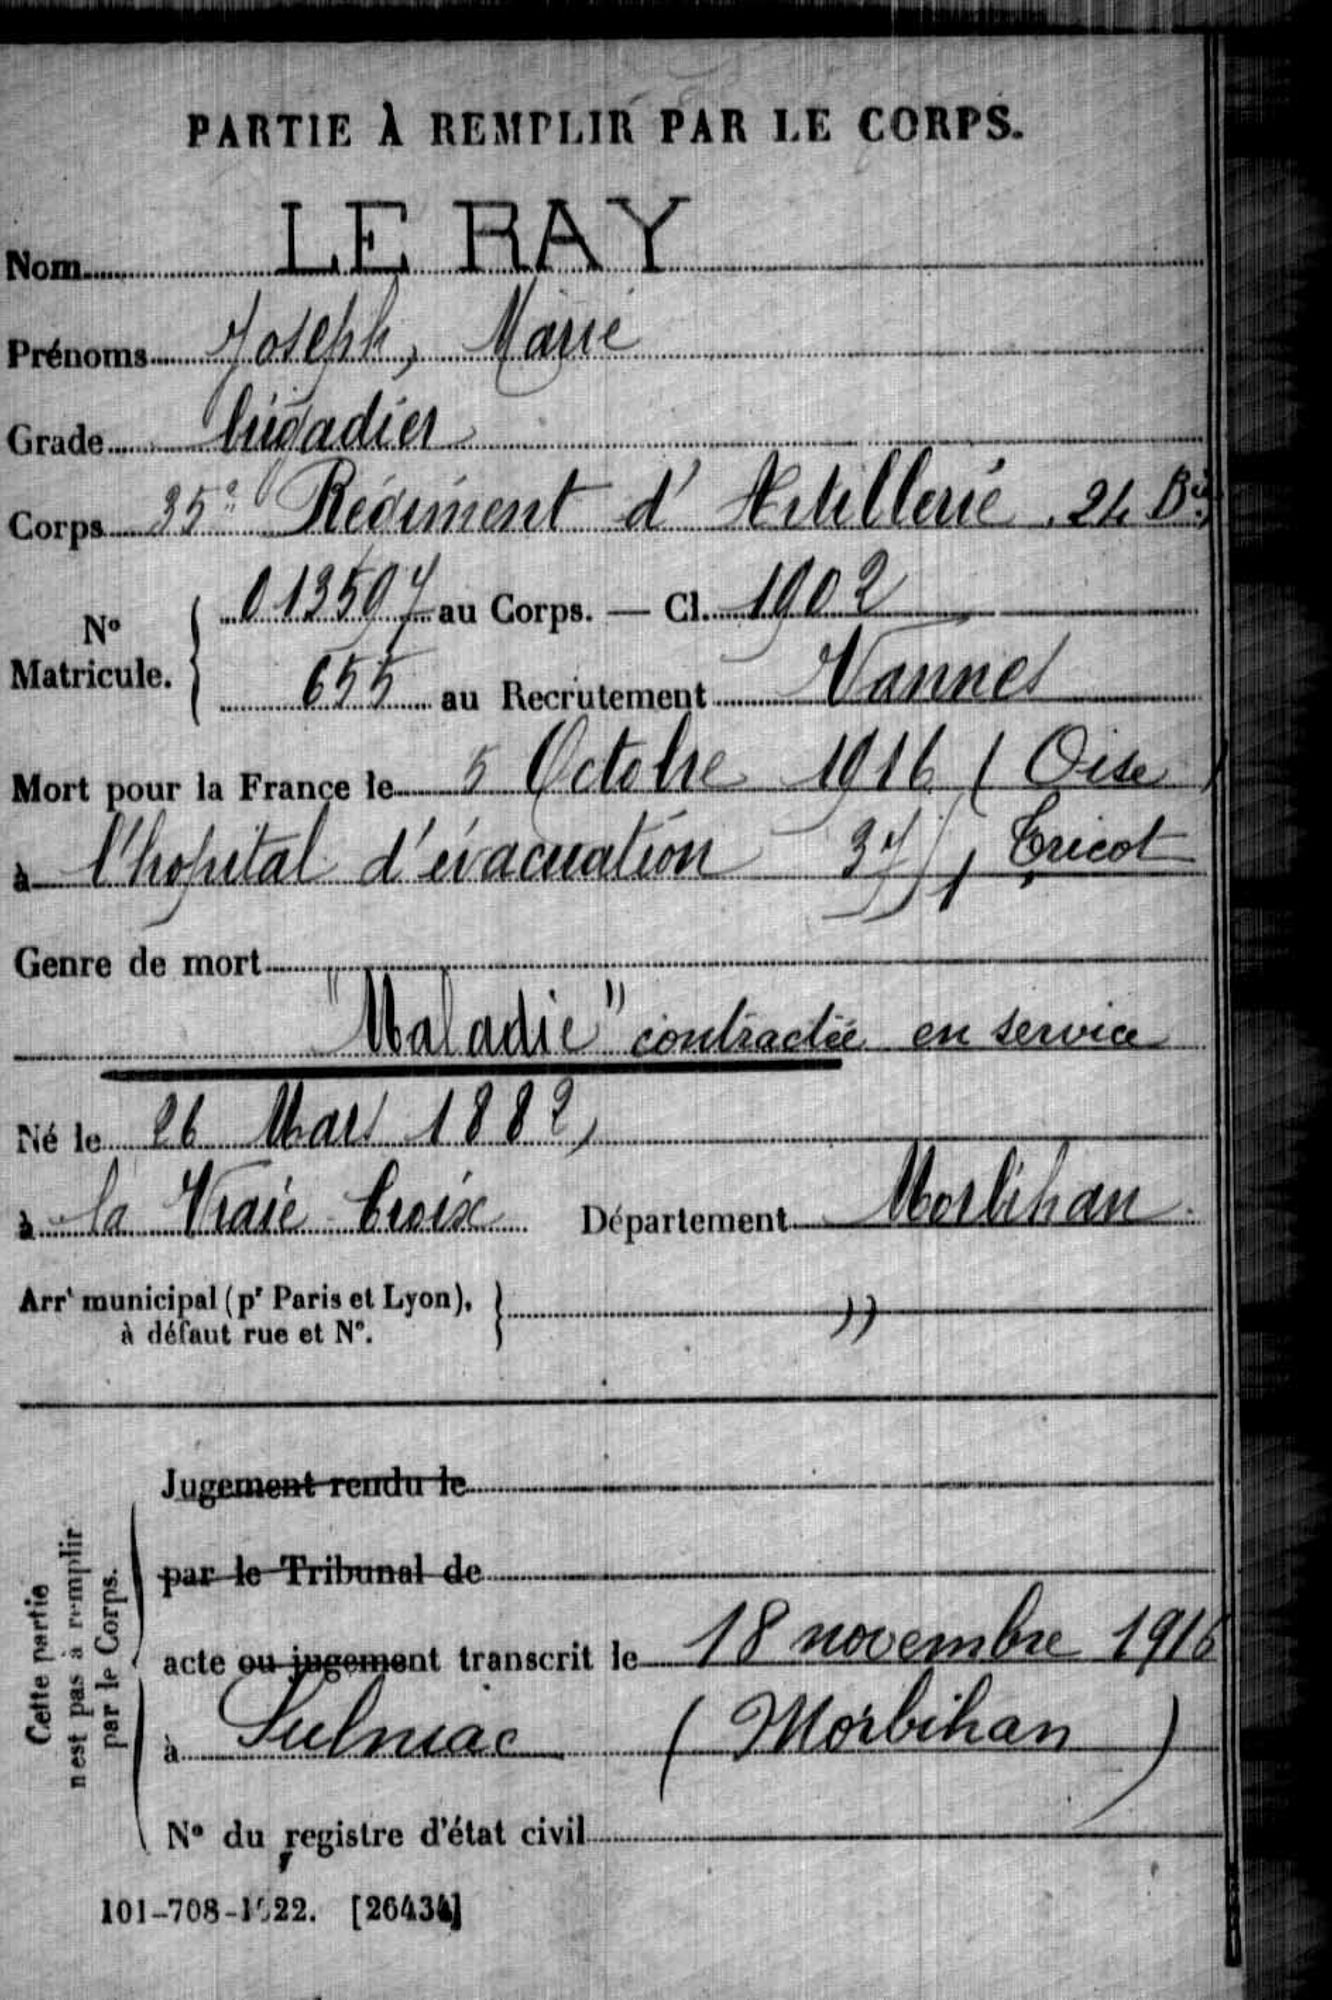 PARTIE À REMPLIR PAR LE CORPS.
Nom LE RAY
Prénoms Joseph, Marie
Grade brigadier
Corps 35e Régiment d'Artillerie, 24 Bie
No Matricule. { 013597 au Corps. — Cl. 1902
655 au Recrutement Vannes
Mort pour la France le 5 Octobre 1916 (Oise)
à l'hopital d'évacuation 37/1 Tricot
Genre de mort
"Maladie" contractée en service
Né le 26 Mars 1882,
à la Vraie-Croix Département Morbihan.
Arrt municipal (pr Paris et Lyon), à défaut rue et No. } "
Cette partie n'est pas à remplir par le Corps.
Jugement rendu le
par le Tribunal de
acte ou jugement transcrit le 18 novembre 1916
à Sulniac (Morbihan)
No du registre d'état civil
101-708-1922. [26434]